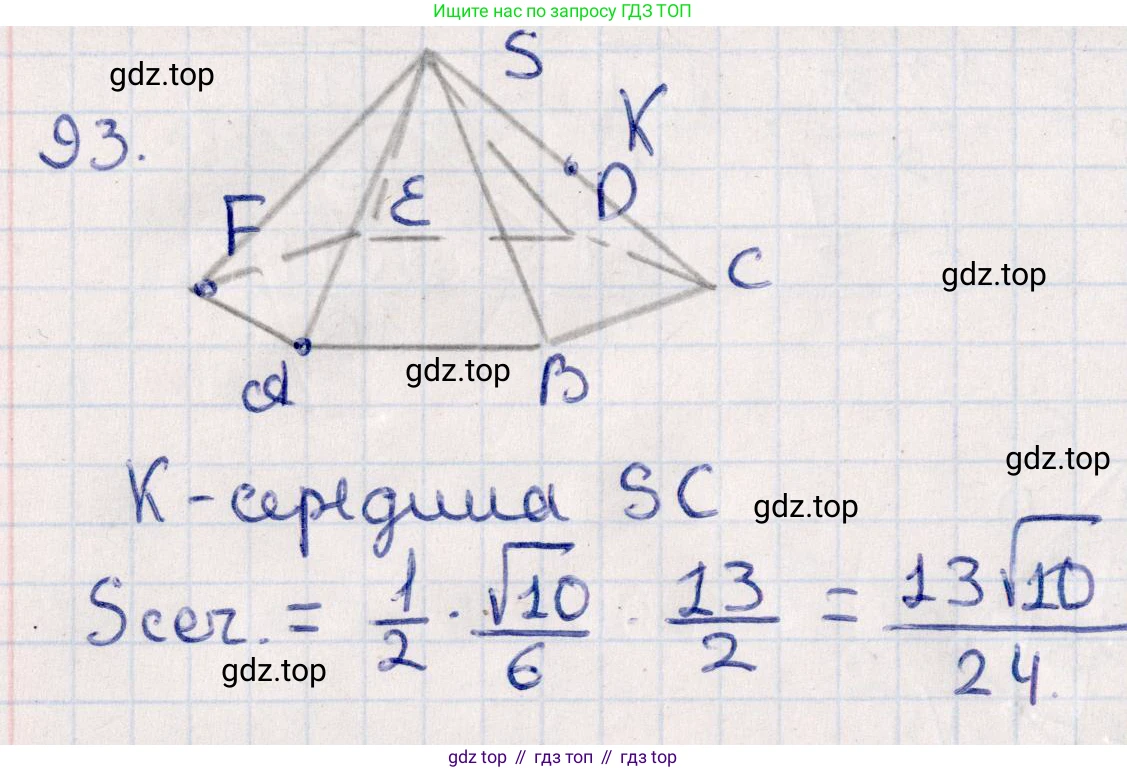 Ищите нас по запросу ГДЗ ТОП
S
gdz.top
K
93.
F
E
D
C
gdz.top
gdz.top
A
B
gdz.top
K - середина SC
gdz.top
Sсеч. = 1/2 · √10/6 · 13/2 = 13√10/24.
gdz.top
gdz top // гдз топ // гдз top